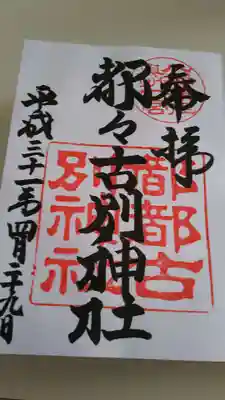 奉拝
都々古別神社
平成三十一年四月二十九日
都都古
別神社